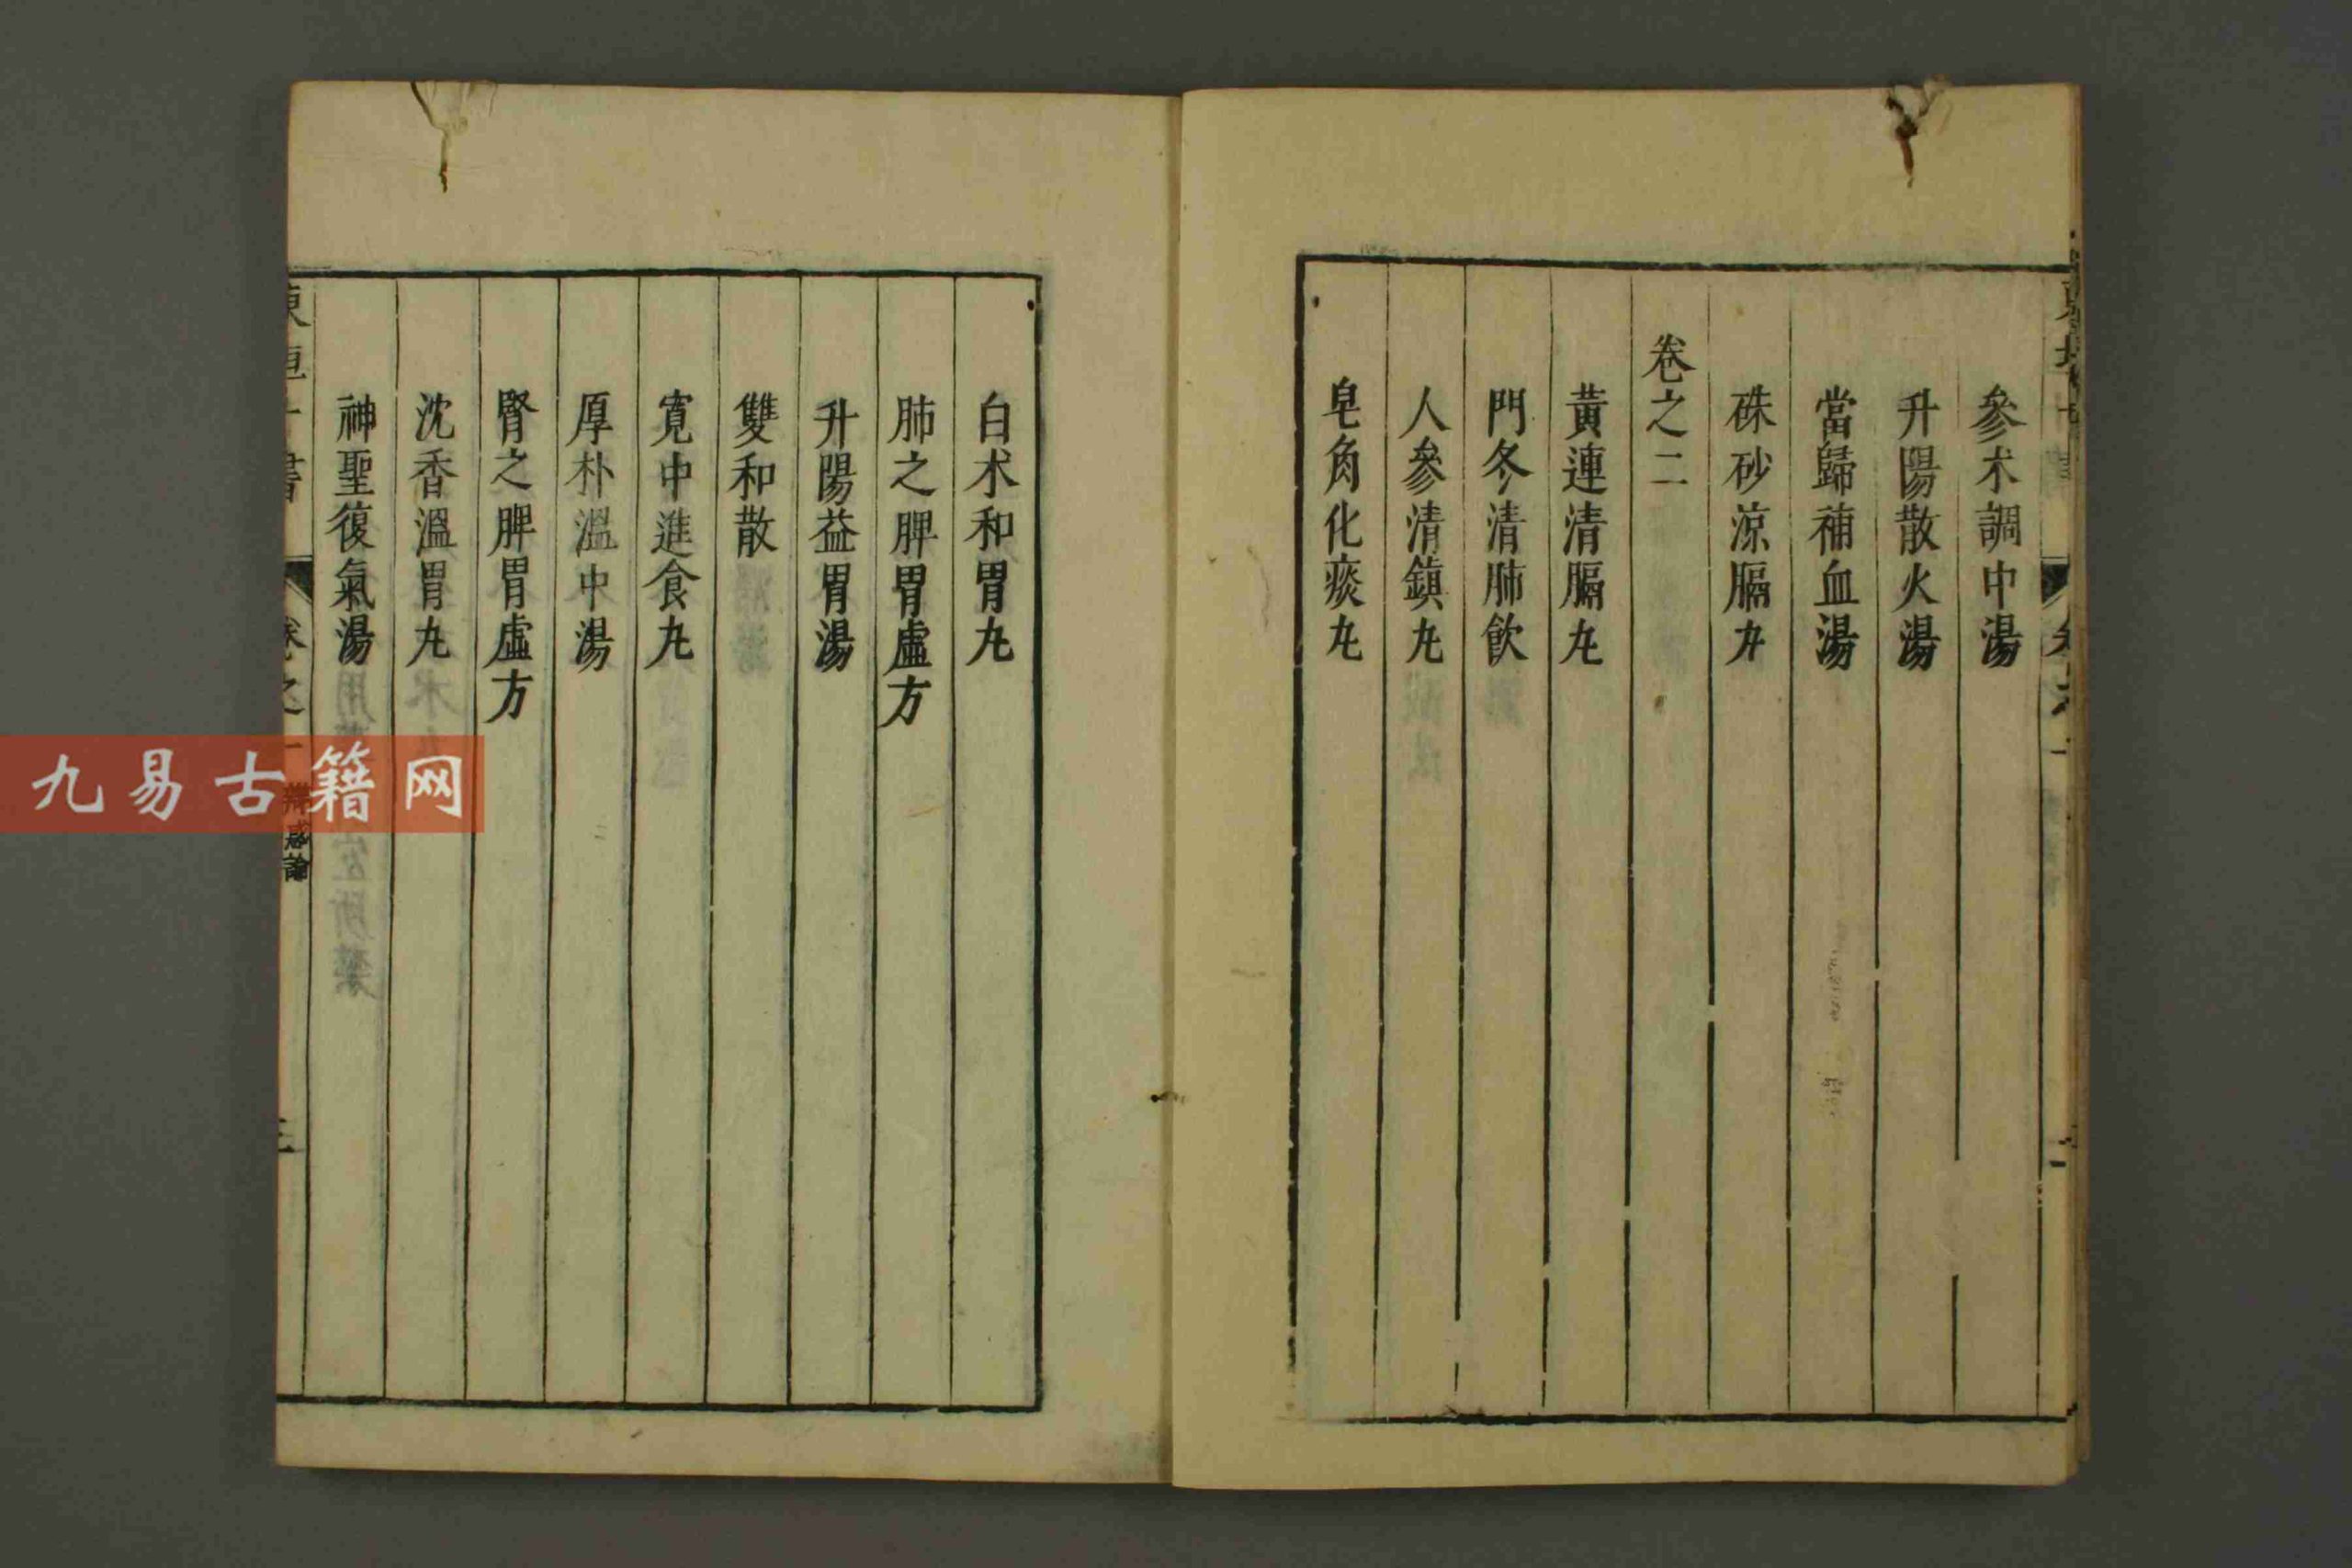 參朮調中湯
升陽散火湯
當歸補血湯
硃砂涼膈丸
卷之二
黃連清膈丸
門冬清肺飲
人參清鎮丸
皂角化痰丸
白朮和胃丸
肺之脾胃虛方
升陽益胃湯
雙和散
寬中進食丸
厚朴溫中湯
腎之脾胃虛方
沈香溫胃丸
神聖復氣湯
東垣十書
卷之一
辨惑論
三
九易古籍网